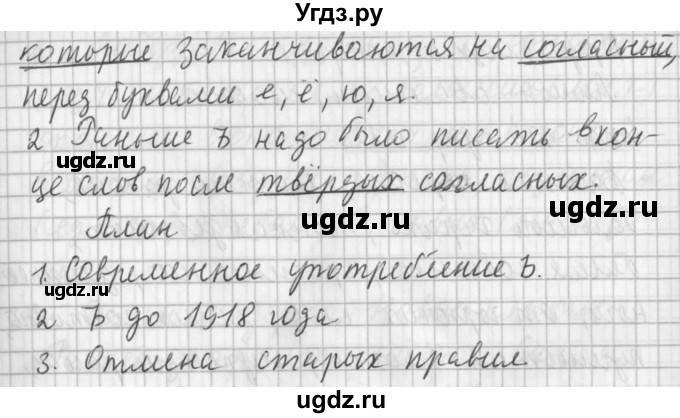 Угдз.ру
которые заканчиваются на согласный,
перед буквами е, ё, ю, я.
2 Раньше ъ надо было писать в кон-
ugdz.ru ugdz.ru
це слов после твёрдых согласных.
ugdz.ru
План
1. Современное употребление ъ.
ugdz.ru
2 Ъ до 1918 года
ugdz.ru
3. Отмена старых правил
ugdz.ru ugdz.ru